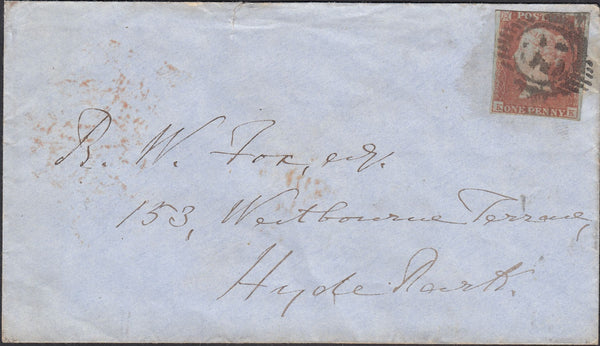 POST
ONE PENNY
R. W. Fox, esq.
153, Westbourne Terrace,
Hyde Park.